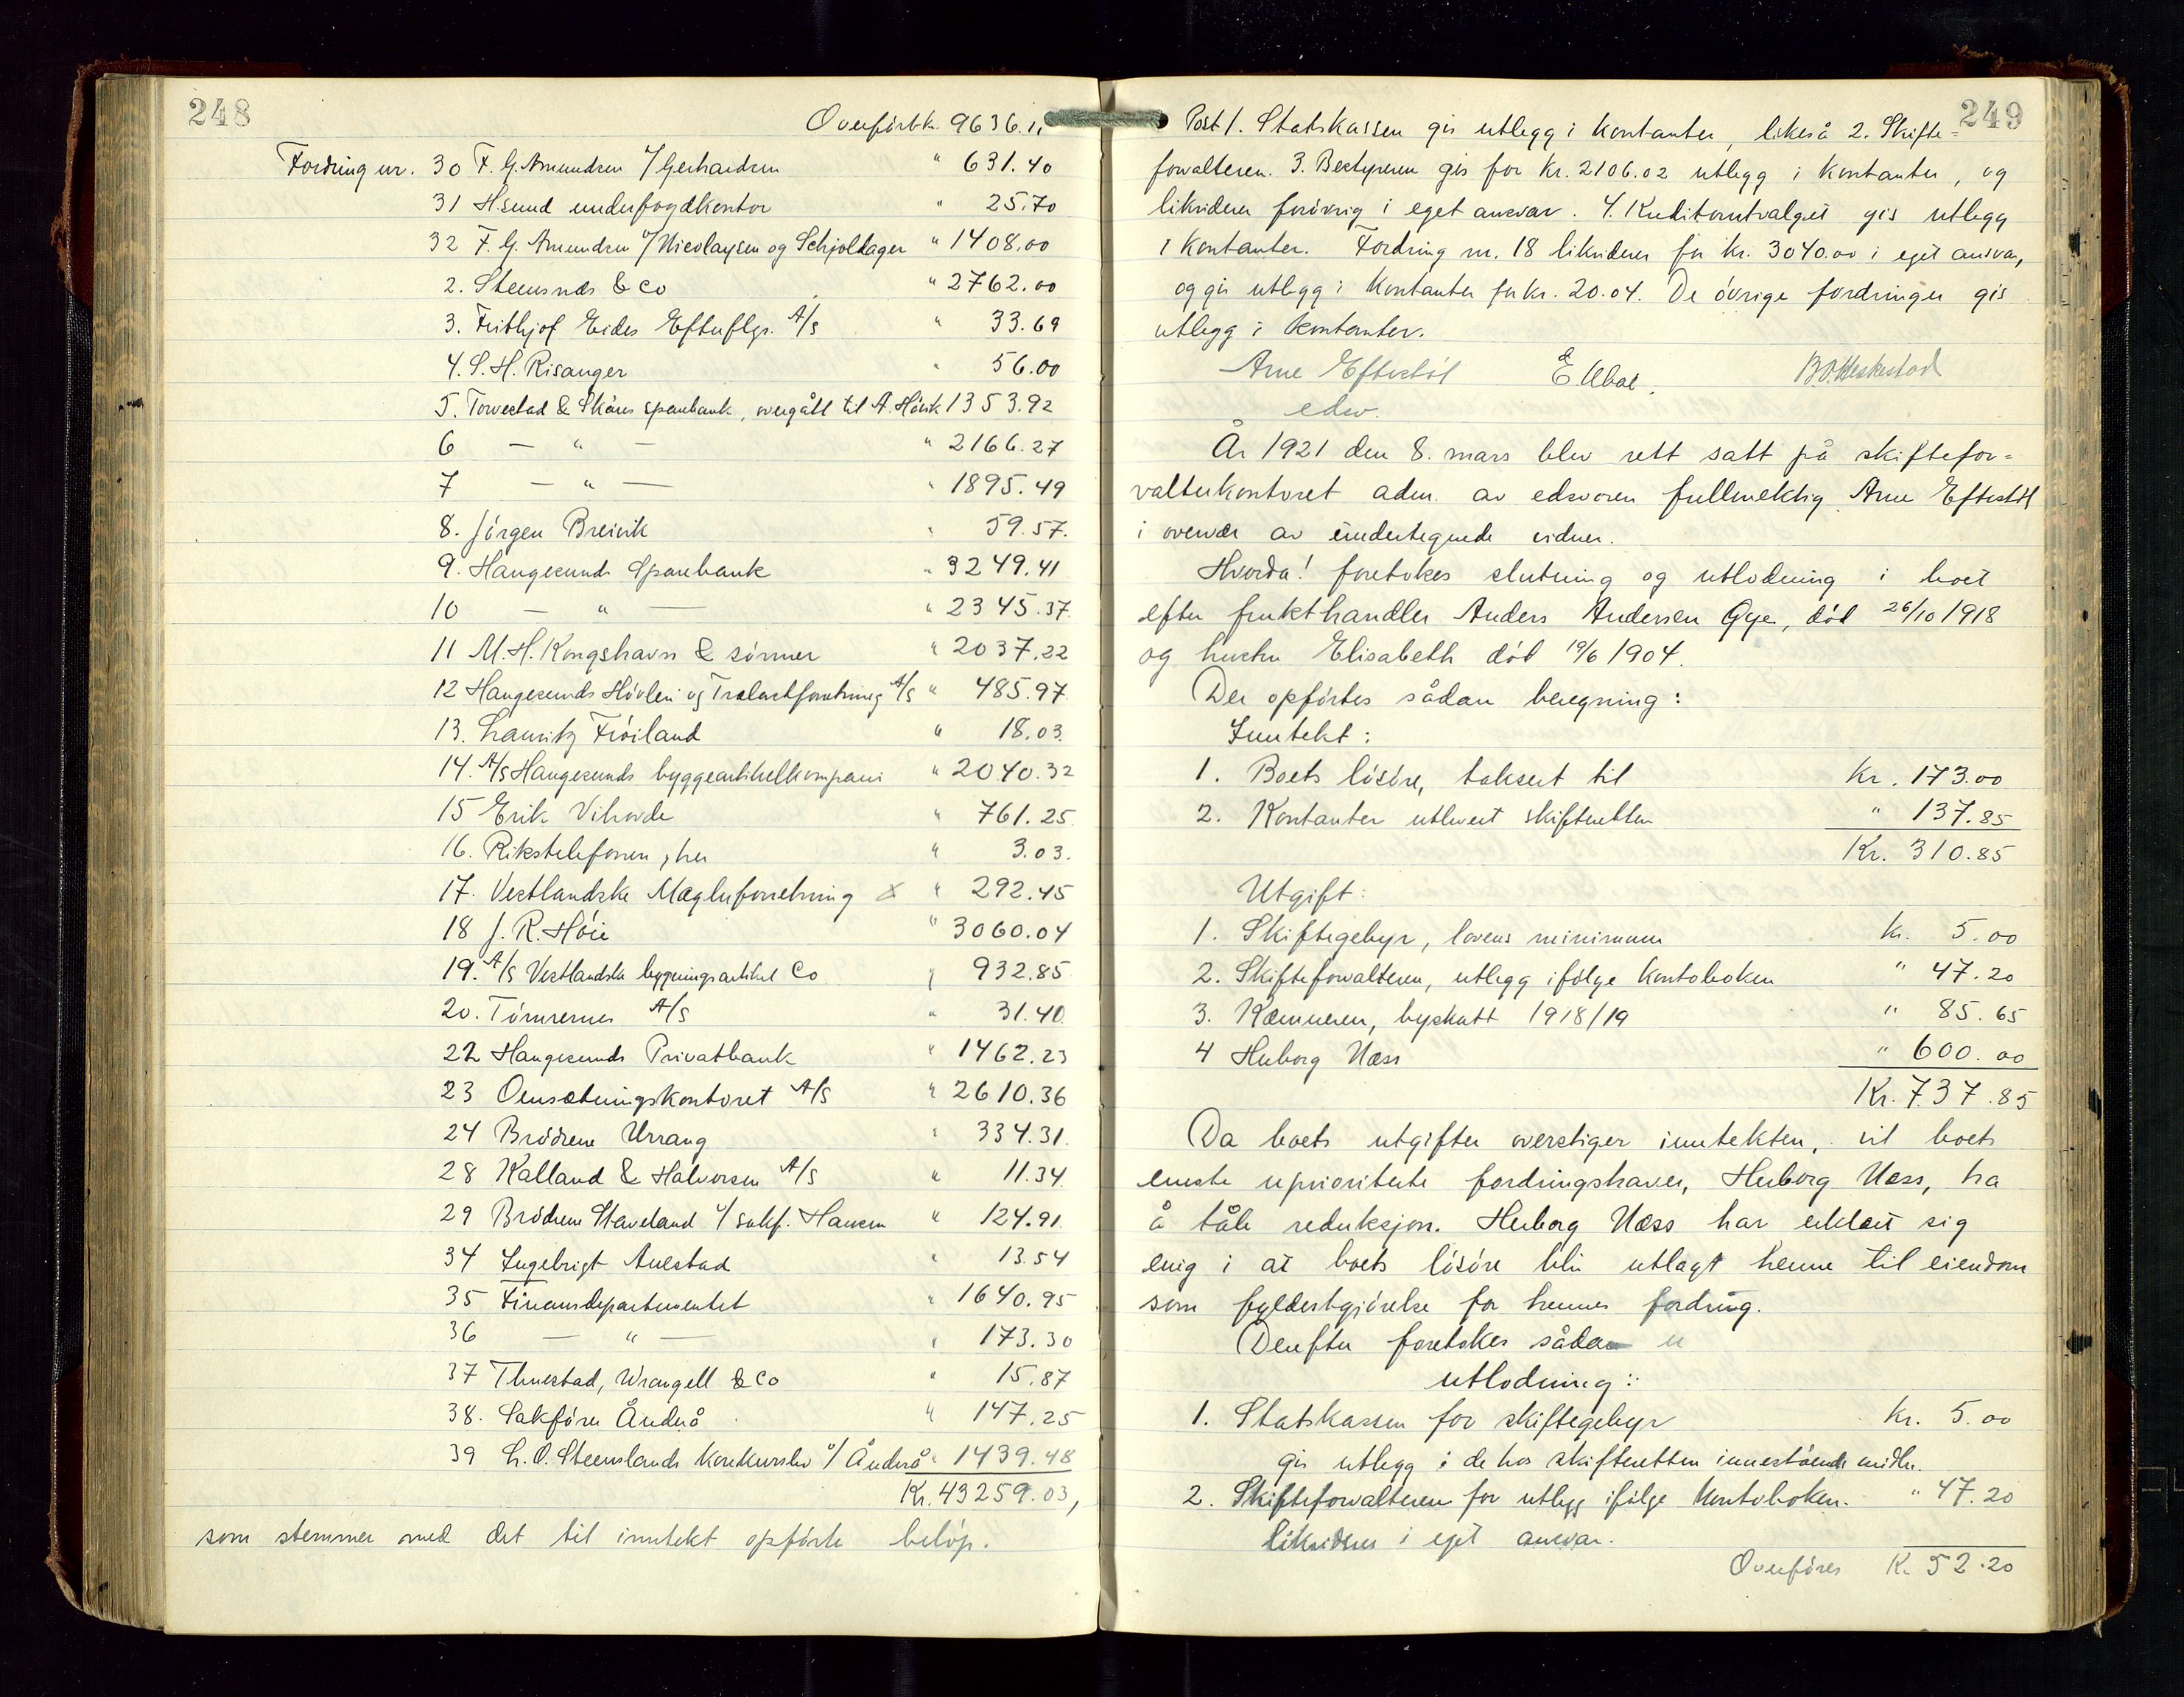 248
Overført kr. 9636.11
Fordring nr. 30 F. G. Amundsen v/ Gerhardsen " 631.40
31 H.sund underfogdkontor " 25.70
32 F. G. Amundsen v/ Nicolaysen og Schjoldager " 1408.00
2. Steensnæs & Co " 2762.00
3. Frithjof Eides Efterflgr. A/S " 33.69
4. S. H. Risanger " 56.00
5. Torvestad & Skåres sparebank, overgått til A. Hövik 1353.92
6 — " — " 2166.27
7 — " — " 1895.49
8. Jörgen Breivik " 59.57.
9. Haugesunds Sparebank " 3249.41
10 — " — " 2345.37.
11 M. H. Kongshavn & sönner " 2037.22
12 Haugesunds Hövleri og Trælastforretning A/S " 485.97
13. Lauritz Fröiland " 18.03.
14. A/S Haugesunds byggeartikelkompani " 2040.32
15 Erik Vihovde " 761.25
16. Rikstelefonen, her " 3.03.
17. Vestlandske Mæglerforretning x " 292.45
18 J. R. Höie " 3060.04
19. A/S Vestlandske bygningsartikel Co " 932.85
20. Tömrernes A/S " 31.40
22 Haugesunds Privatbank " 1462.23
23 Omsætningskontoret A/S " 2610.36
24 Brödrene Urrang " 334.31.
28 Kalland & Halvorsen A/S " 11.34
29 Brödrene Staveland v/ sakf. Hansen " 124.91
34 Ingebrigt Auestad " 13.54
35 Finansdepartementet " 1640.95
36 — " — " 173.30
37 Thuestad, Wrangell & Co " 15.87
38. Sakförer Åndrå " 147.25
39 L. O. Steenslands konkursbo v/ Åndrå " 1439.48
Kr. 43259.03,
som stemmer med det til inntekt opförte belöp.
249
Post 1. Statskassen gis utlegg i kontanter, likeså 2. Skifte=
forvalteren. 3. Bestyreren gis for kr. 2106.02 utlegg i kontanter, og
likviderer forövrig i eget ansvar. 4. Kreditorutvalget gis utlegg
i kontanter. Fordring nr. 18 likviderer for kr. 3040.00 i eget ansvar,
og gis utlegg i kontanter for kr. 20.04. De övrige fordringer gis
utlegg i kontanter.
Arne Eftestöl B. O. Heskestad
edsv.
År 1921 den 8. mars blev rett satt på skiftefor=
valterkontoret adm. av edsvoren fullmektig Arne Eftestöl
i overvær av undertegnede vidner.
Hvorda! foretokes slutning og utlodning i boet
efter frukthandler Anders Andersen Gye, död 26/10 1918
og hustru Elisabeth död 19/6 1904.
Der opförtes sådan beregning:
Inntekt:
1. Boets lösöre, taksert til Kr. 173.00
2. Kontanter utlevert skifteretten " 137.85
Kr. 310.85
Utgift:
1. Skiftegebyr, lovens minimum Kr. 5.00
2. Skifteforvalteren, utlegg ifölge kontoboken " 47.20
3. Kæmneren, byskatt 1918/19 " 85.65
4 Herborg Næss " 600.00
Kr. 737.85
Da boets utgifter overstiger inntekten, vil boets
eneste uprioriterte fordringshaver, Herborg Næss, ha
å tåle reduksjon. Herborg Næss har erklært sig
enig i at boets lösöre blir utlagt henne til eiendom
som fyldestgjörelse for hennes fordring.
Derefter foretokes sådan
utlodning:
1. Statskassen for skiftegebyr Kr. 5.00
gis utlegg i de hos skifteretten innestående midler.
2. Skifteforvalteren for utlegg ifölge kontoboken. " 47.20
likvideres i eget ansvar.
Overföres K. 52.20